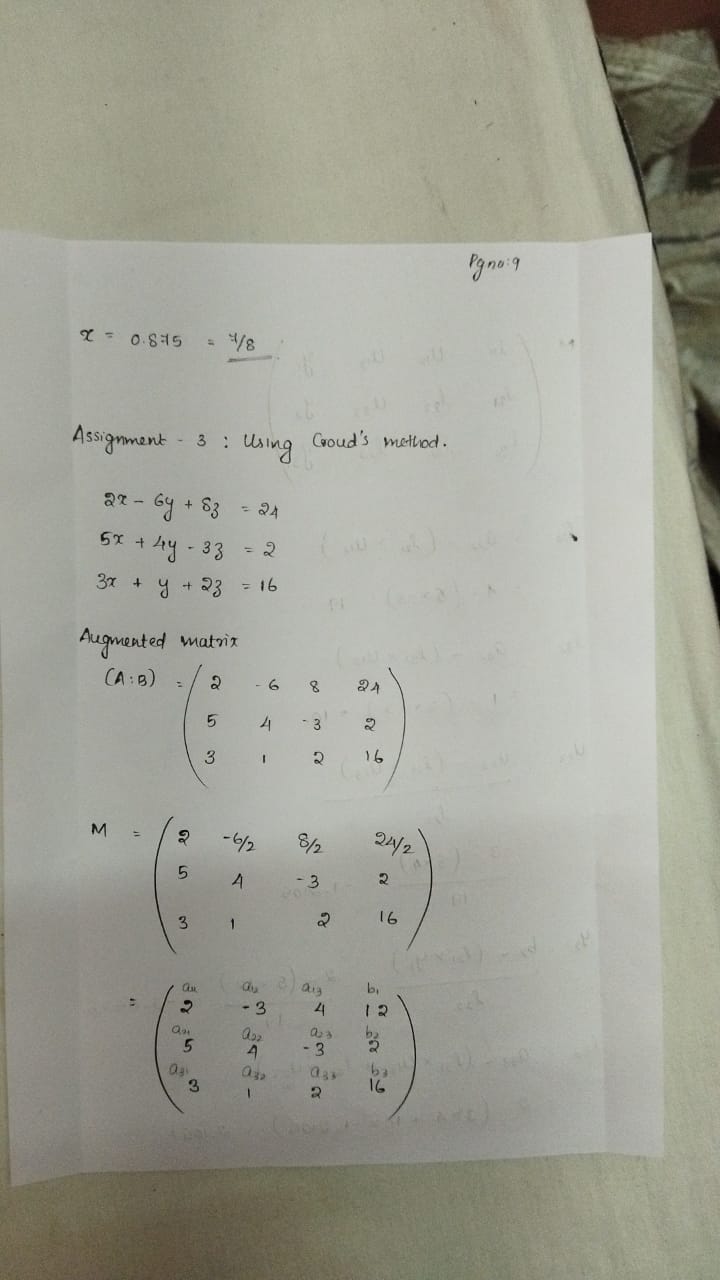 Pg no: 9
x = 0.875 = 7/8
Assignment - 3 : Using Croud's method.
2x - 6y + 8z = 24
5x + 4y - 3z = 2
3x + y + 2z = 16
Augmented matrix
(A:B) = 2 -6 8 24
5 4 -3 2
3 1 2 16
M = 2 -6/2 8/2 24/2
5 4 -3 2
3 1 2 16
= a11 a12 a13 b1
2 -3 4 12
a21 a22 a23 b2
5 4 -3 2
a31 a32 a33 b3
3 1 2 16